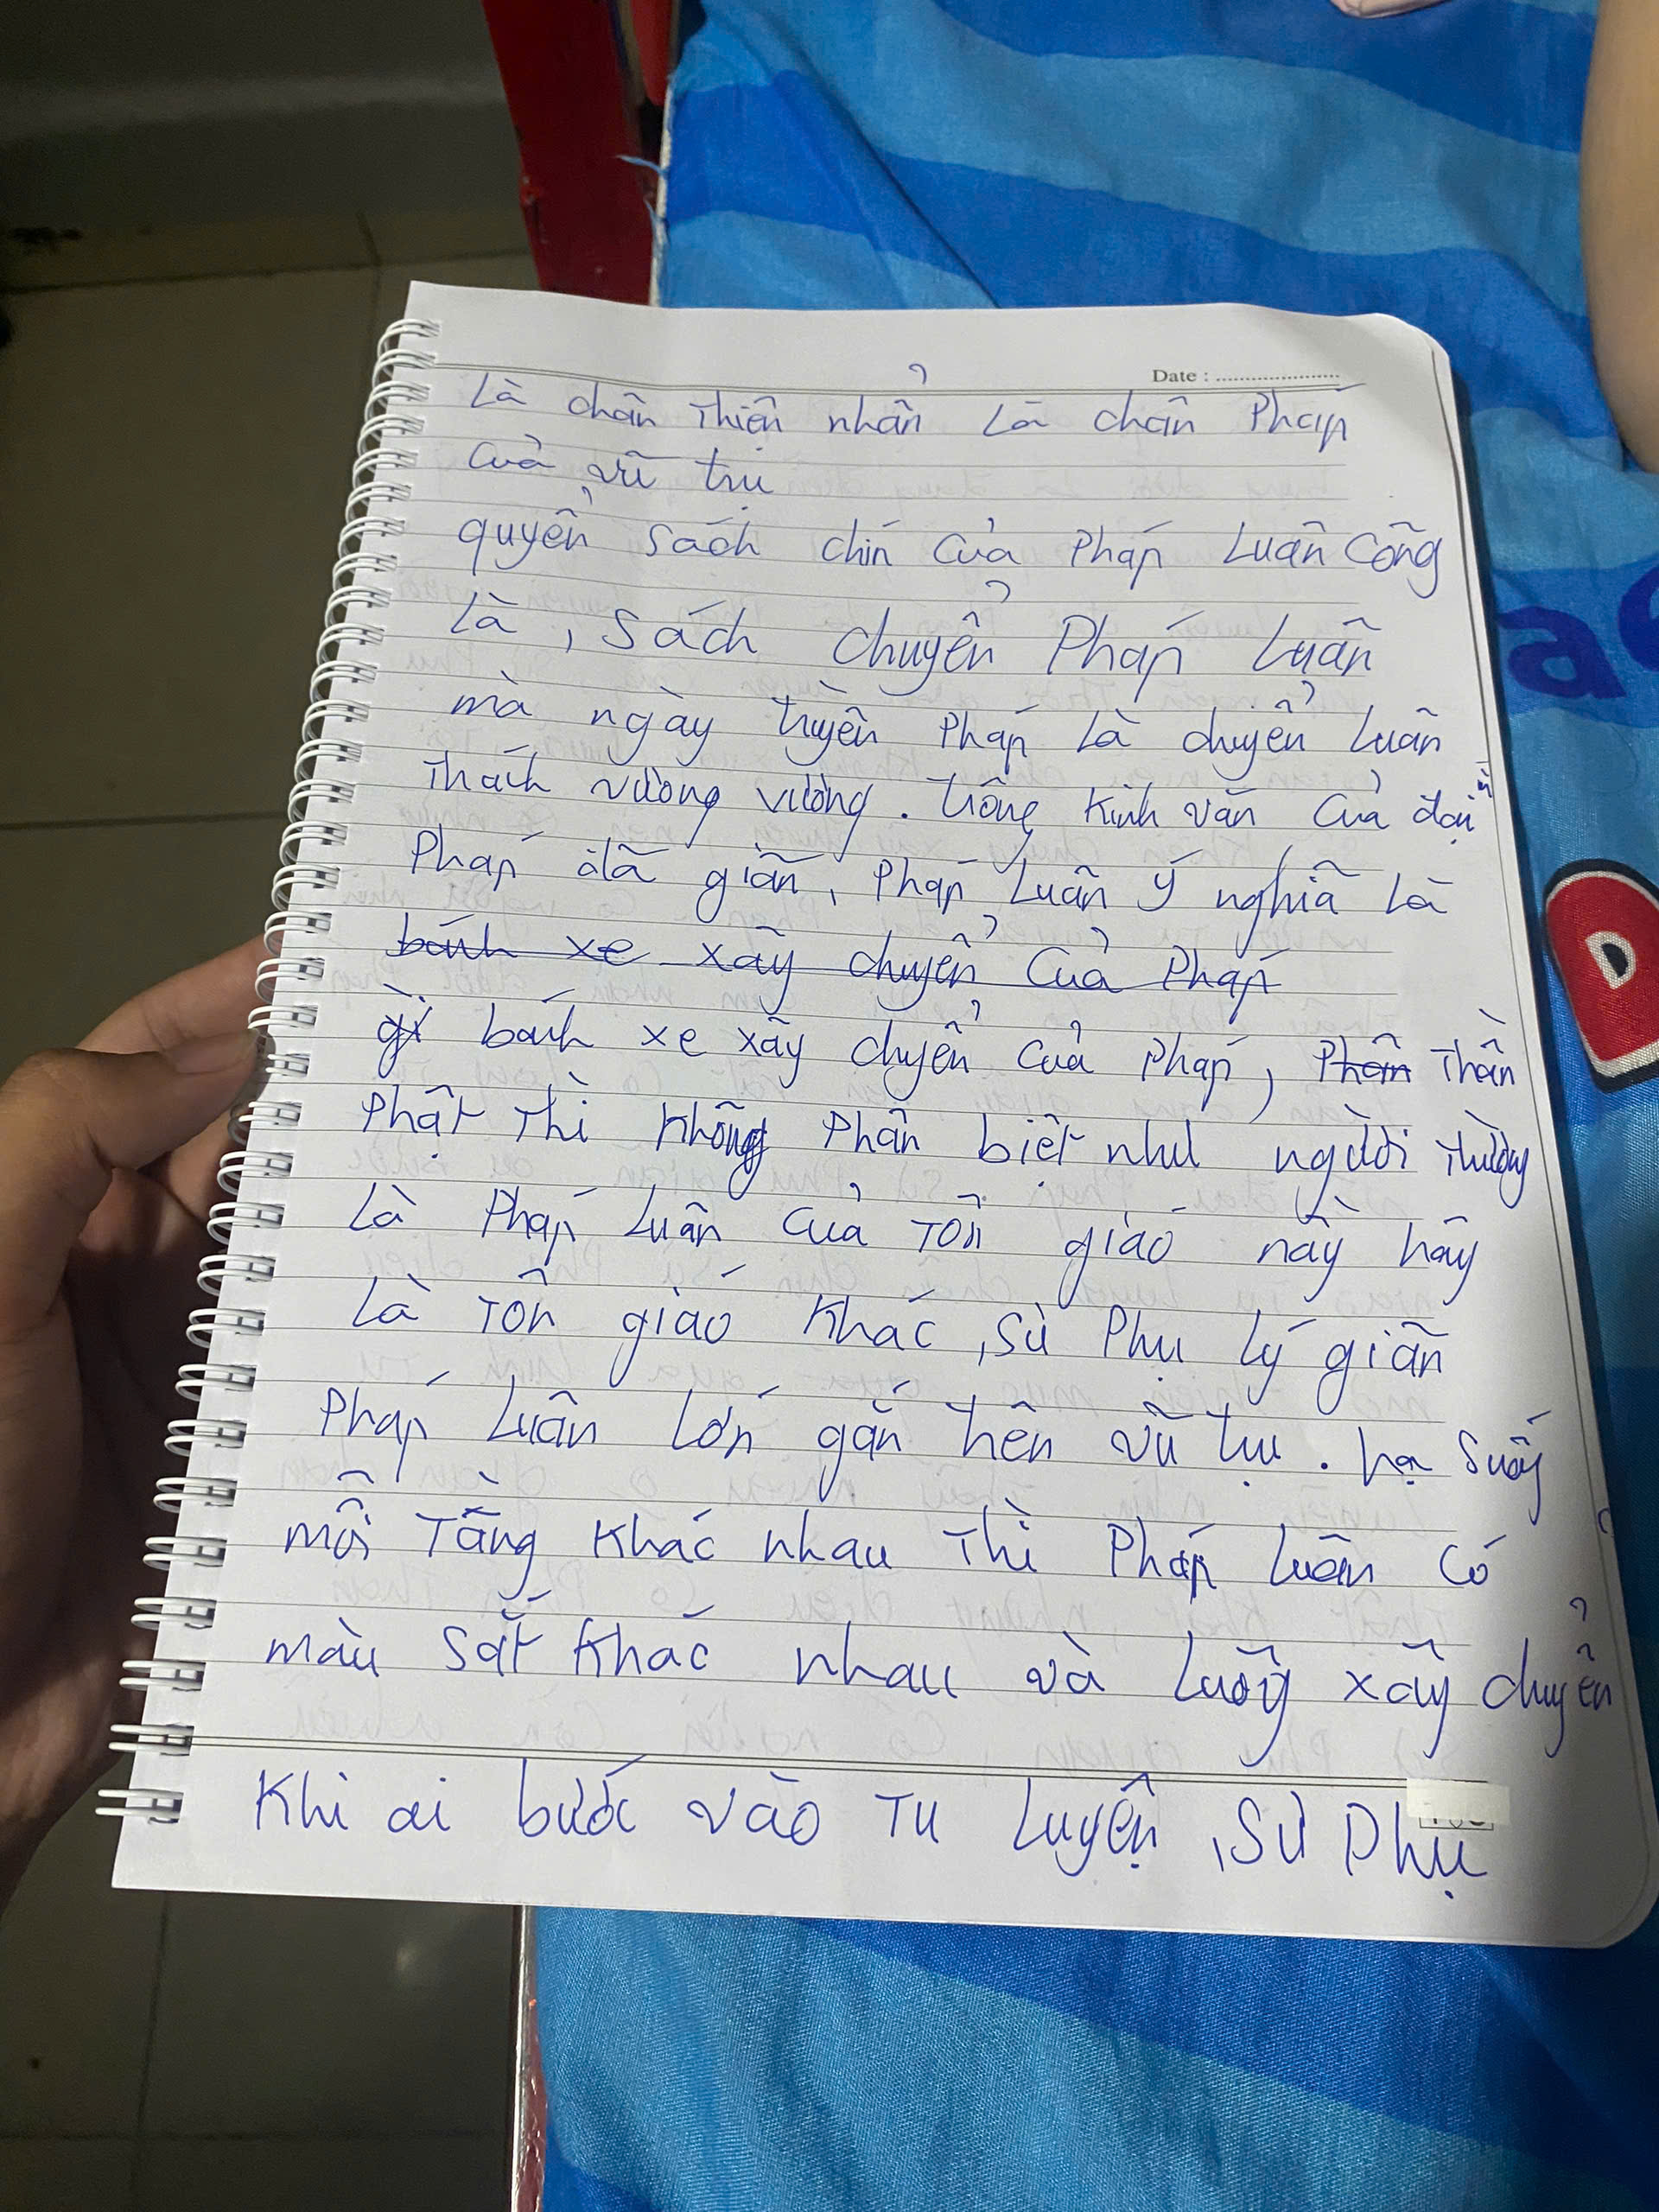 Date :
Là chân Thiện nhẫn Là chân Pháp
của vũ trụ
quyển sách chín của Pháp Luân Công
Là, Sách chuyển Pháp Luân
mà ngày truyền Pháp Là chuyển Luân
Thách vương vương. trông Kinh văn của đại
Pháp đã giãn, Pháp Luân ý nghĩa Là
bánh xe xây chuyển của Pháp
gì bánh xe xây chuyển của Pháp, Phân Thần
Phật Thì Không Phân biệt như người Thường
Là Pháp Luân của Tôn giáo này hây
Là Tôn giáo Khác, sư Phụ Lý giãn
Pháp Luân Lớn gắn trên vũ trụ. hạ Suốy
mỗi Tầng Khác nhau Thì Pháp Luân Có
màu Sắt Khác nhau và Luôy xây chuyển
Khi ai bước vào Tu Luyện, Sư Phụ
D